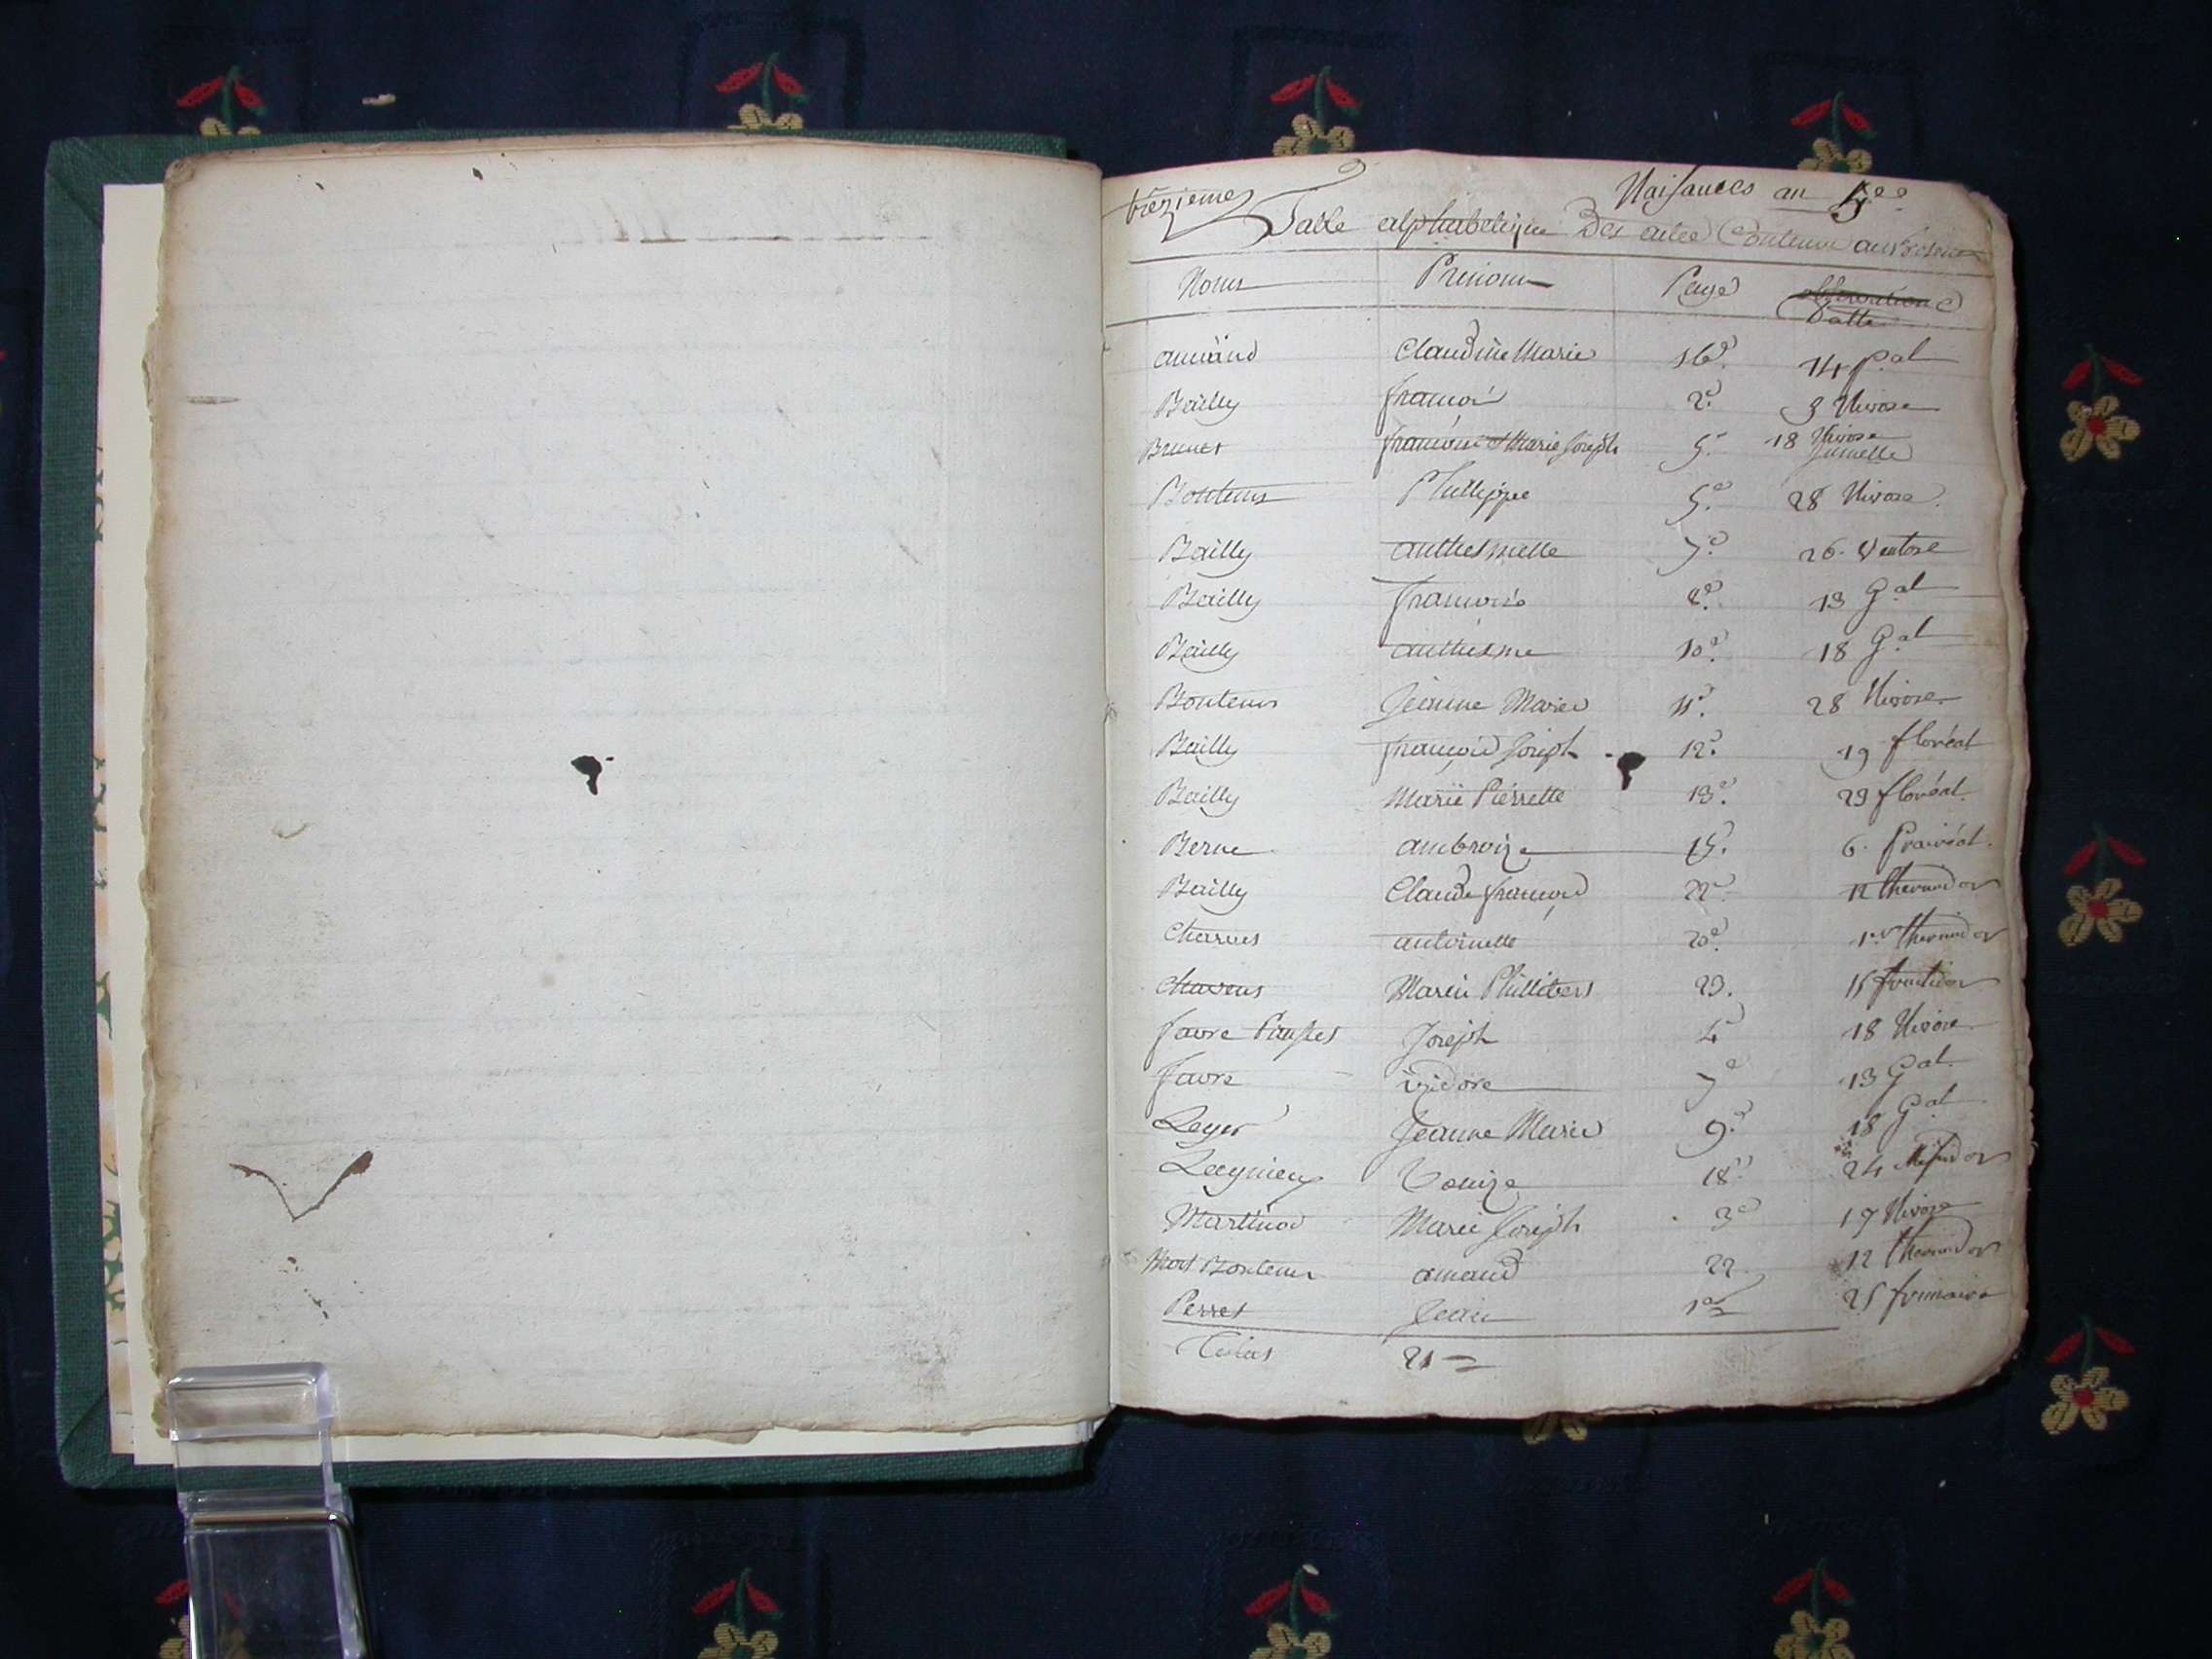 Naisances an 5.ee
trezieme
Table alphabetique Des actes Contenu au
Noms Prenoms Page
Datte
armand Claudine Marie 16e. 14 P.al
Bailly francois 2e. 3 Nivose
Brunet francoise et Marie Joseph 5e 18 Nivose
Jumelle
Bontems Phillippe 5e. 28 Nivose
Bailly anthesmelle 7e. 26. Ventose
Bailly francoise 8e. 13 G.al
Bailly anthesme 10e. 18 G.al
Bontems Jeanne Marie 11e. 28 Nivose
Bailly françois Joseph 12e. 19 floréal
Bailly Marie Pierrette 13e. 29 floréal.
Berne ambroize 15. 6. Prairéal.
Bailly Claude françois 22e 12 thermidor
Charves antoinette 20e. 1er thermidor
Marie Phillibers 23. 15 fructidor
favre Joseph 4e 18 Nivose
favre izidore 7e 13 G.al
Leger Jeanne Marie 9e. 18 G.al
Lagnieux Louize 18e. 24 Mesidor
Martinod Marie Joseph 3e 17 Nivose
Mort Bontems amand 22. 12 thermidor
Perret Jean 1er 25 frimaire
Totas 21